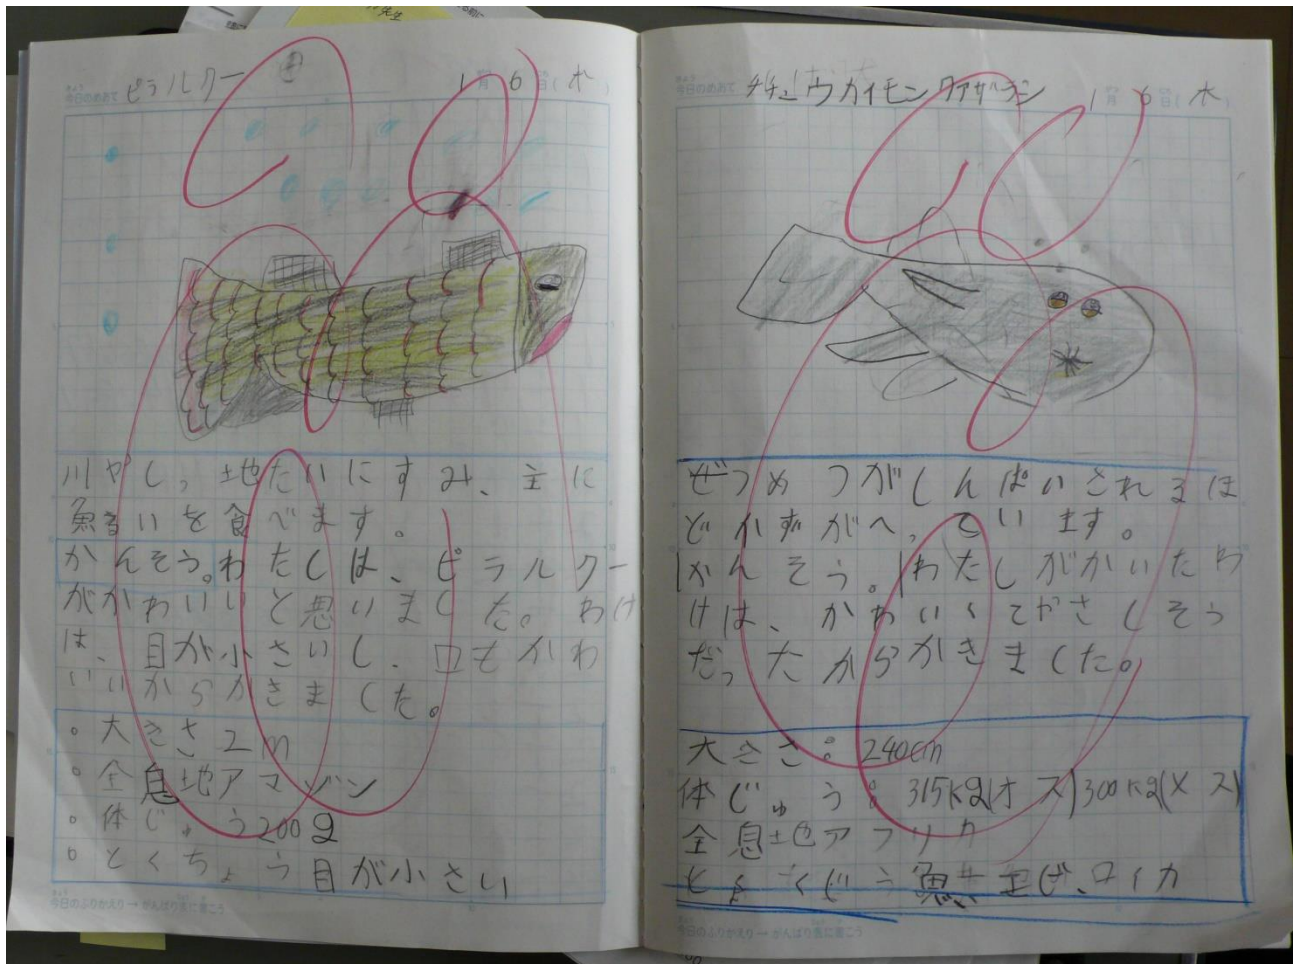 先生
今日のめあて ピラルクー 1月6日(水)
川やしっ地たいにすみ、主に
魚るいを食べます。
かんそう。わたしは、ピラルクー
がかわいいと思いました。わけ
は、目が小さいし、口もかわ
いいからかきました。
。大きさ2m
。全息地アマゾン
。体じゅう200g
。とくちょう目が小さい
今日のふりかえり→がんばり表に書こう
今日のめあて チチュウカイモンクアザラシ 1月6日(水)
ぜつめつがしんぱいされるほ
どかずがへっています。
かんそう。わたしがかいたわ
けは、かわいくてやさしそう
だったからかきました。
大きさ:240cm
体じゅう:315kg(オス)300kg(メス)
全息地アフリカ
魚 エビ、イカ
今日のふりかえり→がんばり表に書こう